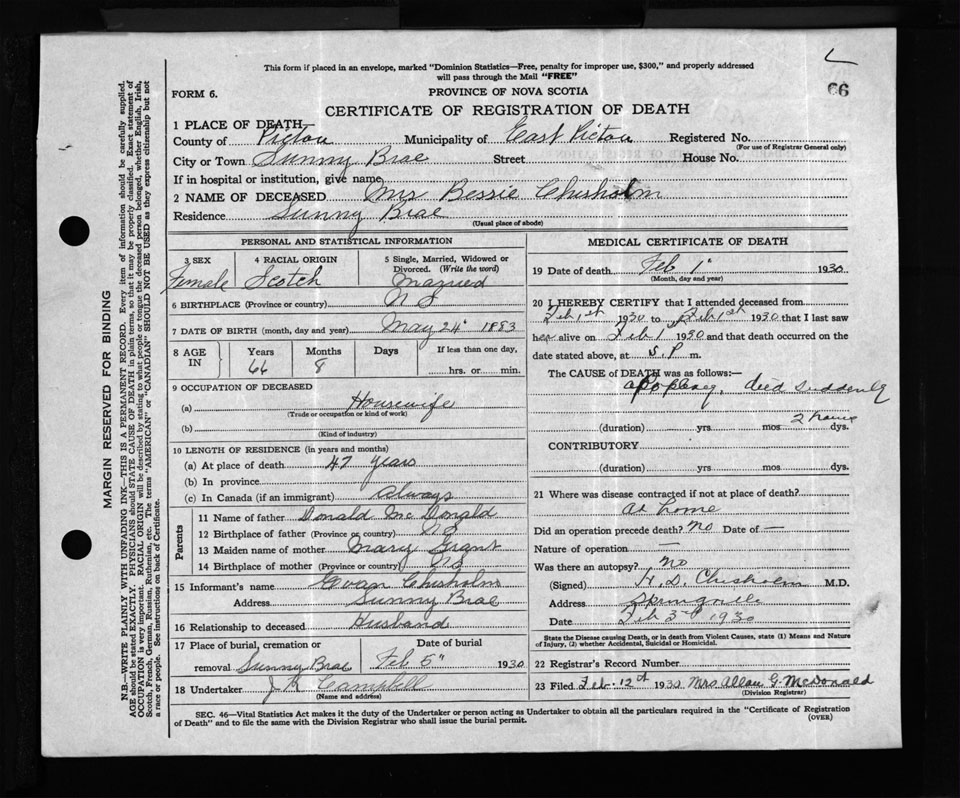 This form if placed in an envelope, marked "Dominion Statistics—Free, penalty for improper use, $300," and properly addressed
will pass through the Mail "FREE"
66
FORM 6.
PROVINCE OF NOVA SCOTIA
CERTIFICATE OF REGISTRATION OF DEATH
1 PLACE OF DEATH—
County of Pictou Municipality of East Pictou Registered No.
(For use of Registrar General only)
City or Town Sunny Brae Street House No.
If in hospital or institution, give name
2 NAME OF DECEASED Mrs Bessie Chisholm
Residence Sunny Brae
(Usual place of abode)
PERSONAL AND STATISTICAL INFORMATION
3 SEX 4 RACIAL ORIGIN 5 Single, Married, Widowed or
Divorced. (Write the word)
Female Scotch Married
6 BIRTHPLACE (Province or country) N S
7 DATE OF BIRTH (month, day and year) May 24" 1883
8 AGE IN Years Months Days If less than one day,
66 8 hrs. or min.
9 OCCUPATION OF DECEASED
(a) Housewife
(Trade or occupation or kind of work)
(b)
(Kind of industry)
10 LENGTH OF RESIDENCE (in years and months)
(a) At place of death 47 years
(b) In province
(c) In Canada (if an immigrant) always
Parents
11 Name of father Donald McDonald
12 Birthplace of father (Province or country) N S
13 Maiden name of mother Mary Grant
14 Birthplace of mother (Province or country) N S
15 Informant's name Evan Chisholm
Address Sunny Brae
16 Relationship to deceased Husband
17 Place of burial, cremation or Date of burial
removal Sunny Brae Feb 5" 1930
18 Undertaker J R Campbell
(Name and address)
MEDICAL CERTIFICATE OF DEATH
19 Date of death Feb 1" 1930
(Month, day and year)
20 I HEREBY CERTIFY that I attended deceased from
Feb 1st 1930 to Feb 1st 1930 that I last saw
her alive on Feb 1 1930 and that death occurred on the
date stated above, at 5. P m.
The CAUSE of DEATH was as follows:—
apoplexy, died suddenly
2 hours
(duration) yrs. mos. dys.
CONTRIBUTORY
(duration) yrs. mos. dys.
21 Where was disease contracted if not at place of death?
At home
Did an operation precede death? No Date of —
Nature of operation —
Was there an autopsy? No
(Signed) H. D. Chisholm M.D.
Address Springville
Date Feb 3rd 1930
State the Disease causing Death, or in death from Violent Causes, state (1) Means and Nature
of Injury, (2) whether Accidental, Suicidal or Homicidal.
22 Registrar's Record Number
23 Filed Feb. 12th 1930 Mrs Allan G. McDonald
(Division Registrar)
SEC. 46—Vital Statistics Act makes it the duty of the Undertaker or person acting as Undertaker to obtain all the particulars required in the "Certificate of Registration
of Death" and to file the same with the Division Registrar who shall issue the burial permit.
(OVER)
MARGIN RESERVED FOR BINDING
N.B.—WRITE PLAINLY WITH UNFADING INK—THIS IS A PERMANENT RECORD. Every item of information should be carefully supplied.
AGE should be stated EXACTLY. PHYSICIANS should STATE CAUSE OF DEATH in plain terms, so that it may be properly classified. Exact statement of
OCCUPATION is very important. RACIAL ORIGIN will be described by stating to what people or tongue the deceased person belonged, whether English, Irish,
Scotch, French, German, Russian, Ruthenian, etc. The terms "AMERICAN" or "CANADIAN" SHOULD NOT BE USED as they express citizenship but not
a race or people. See instructions on back of Certificate.